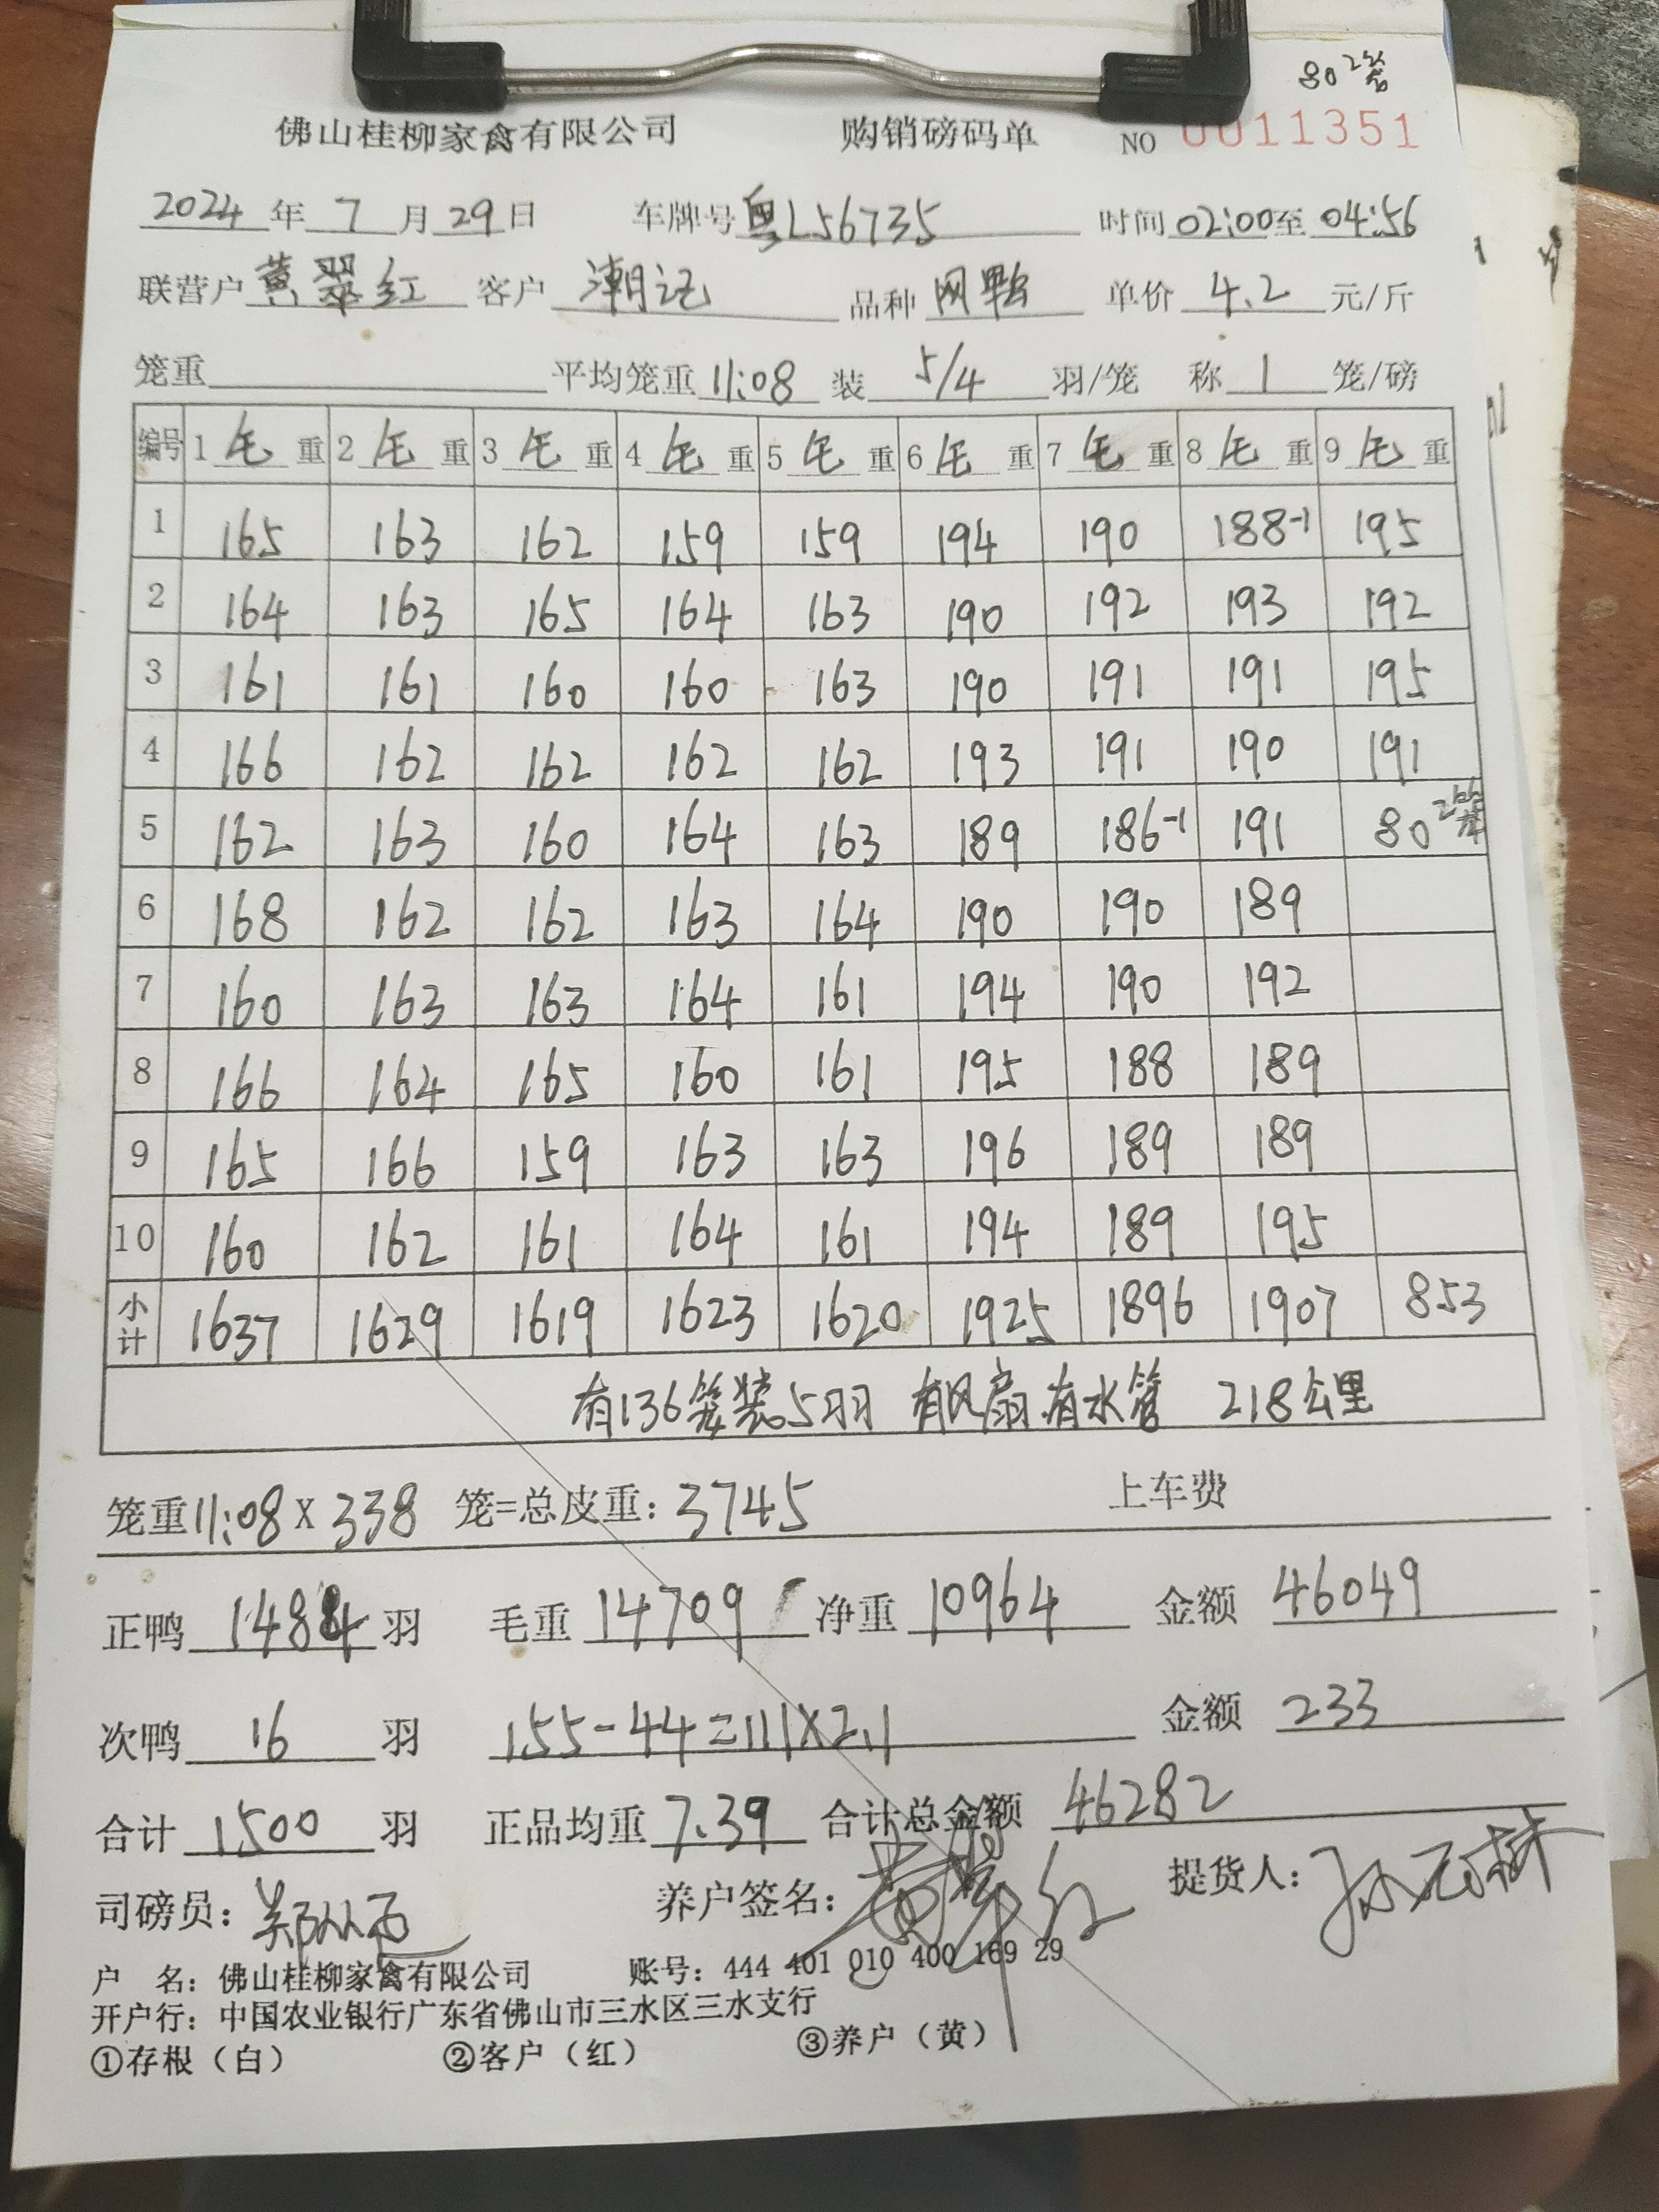 80 2笼
佛山桂柳家禽有限公司 购销磅码单 NO 0011351
2024 年 7 月 29 日 车牌号 粤L56735 时间 02:00 至 04:56
联营户 黄翠红 客户 潮记 品种 网鸭 单价 4.2 元/斤
笼重 平均笼重 11:08 装 5/4 羽/笼 称 1 笼/磅
编号 1 毛 重 2 毛 重 3 毛 重 4 毛 重 5 毛 重 6 毛 重 7 毛 重 8 毛 重 9 毛 重
1 165 163 162 159 159 194 190 188-1 195
2 164 163 165 164 163 190 192 193 192
3 161 161 160 160 163 190 191 191 195
4 166 162 162 162 162 193 191 190 191
5 162 163 160 164 163 189 186-1 191 80 2笼
6 168 162 162 163 164 190 190 189
7 160 163 163 164 161 194 190 192
8 166 164 165 160 161 195 188 189
9 165 166 159 163 163 196 189 189
10 160 162 161 164 161 194 189 195
小计 1637 1629 1619 1623 1620 1925 1896 1907 853
有136笼装5羽 有风扇 有水管 218公里
笼重 11:08 X 338 笼=总皮重: 3745 上车费
正鸭 1484 羽 毛重 14709 净重 10964 金额 46049
次鸭 16 羽 155-44=111×2.1 金额 233
合计 1500 羽 正品均重 7.39 合计总金额 46282
司磅员: 养户签名: 黄翠红 提货人:
户 名: 佛山桂柳家禽有限公司 账号: 444 401 010 400 169 29
开户行: 中国农业银行广东省佛山市三水区三水支行
①存根（白） ②客户（红） ③养户（黄）